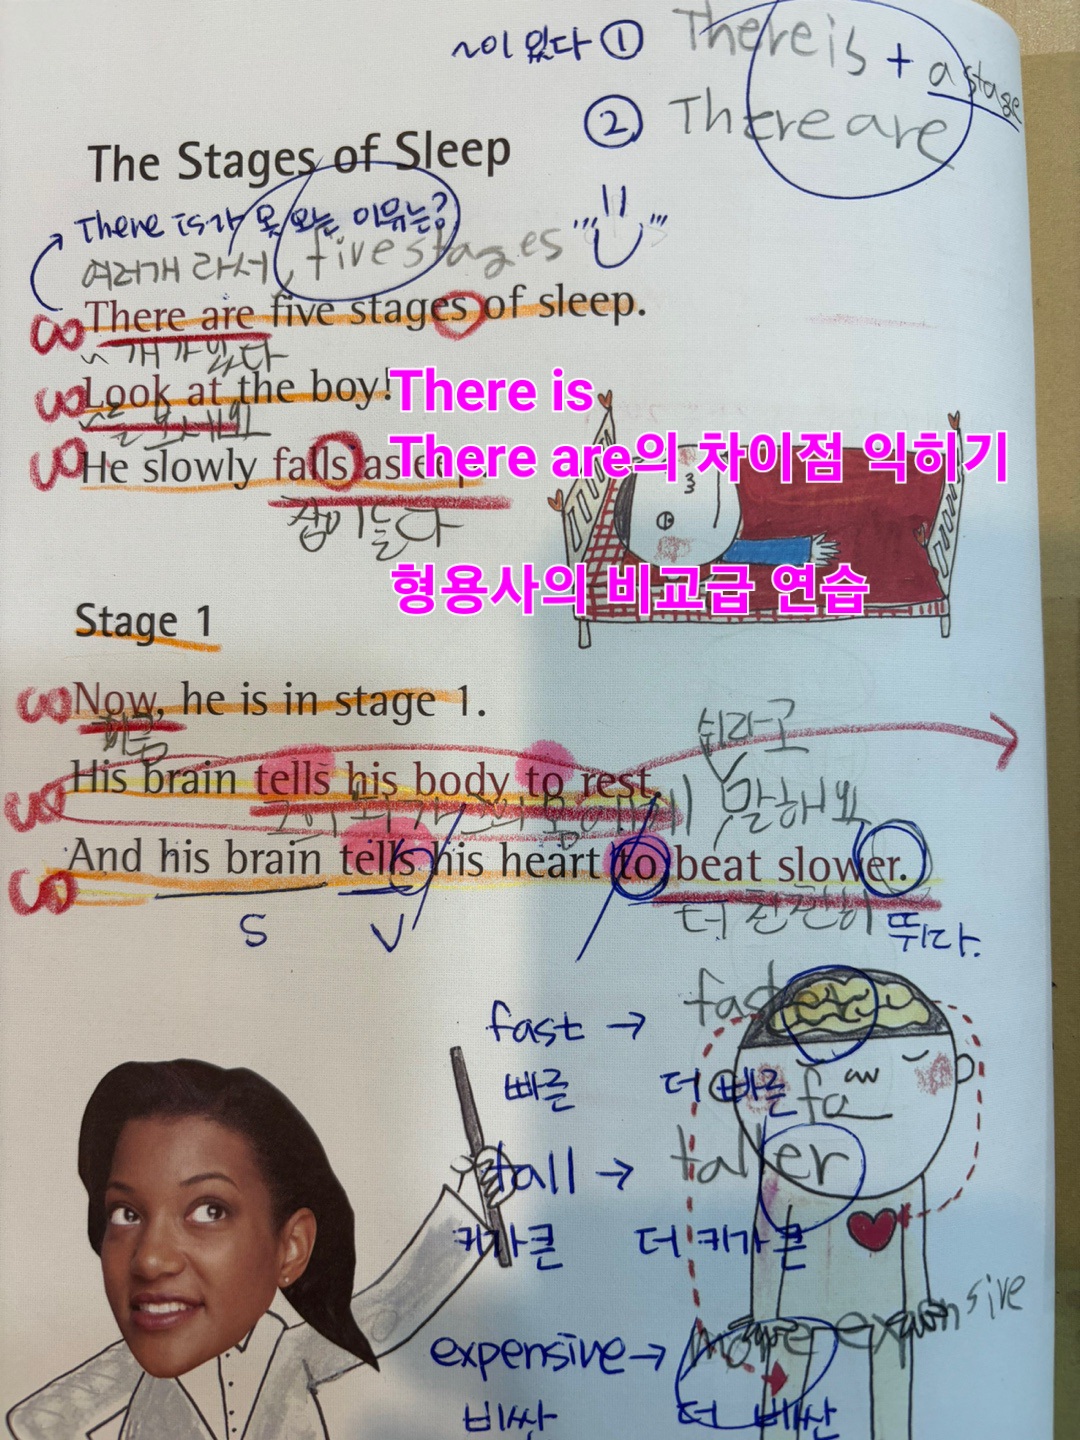 ~이 있다 ① There is + a stage
② There are
The Stages of Sleep
There is가 못 오는 이유는?
여러개 라서, five stages
There are five stages of sleep.
~ 개가 있다
Look at the boy!
There is
~을 보세요
There are의 차이점 익히기
He slowly falls asleep
잠이 들다
형용사의 비교급 연습
Stage 1
Now, he is in stage 1.
지금
쉬라고
His brain tells his body to rest.
그의 뇌가 그의 몸에게 말해요
And his brain tells his heart to beat slower.
S V
더 천천히 뛰다.
fast → faster
빠른 더 빠른
tall → taller
키가 큰 더 키가 큰
expensive → more expensive
비싼 더 비싼